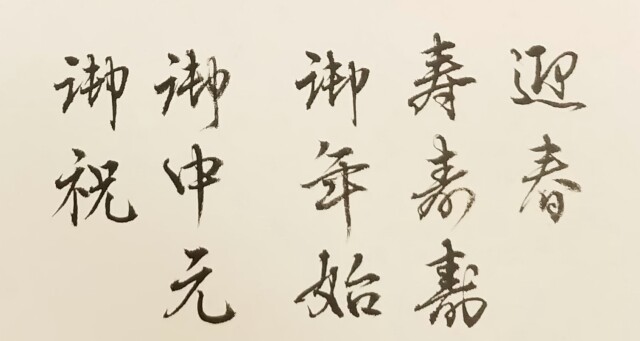 迎春
寿寿壽
御年始
御中元
御祝